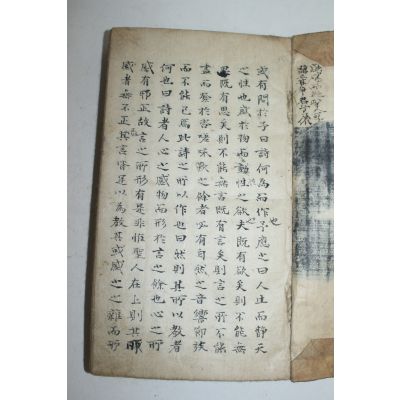 或有問於予曰詩何爲而作也予應之曰人生而靜天
之性也感於物而動性之欲夫旣有欲矣則不能無
思旣有思矣則不能無言旣有言矣則言之所不能
盡而發於咨嗟咏歎之餘者必有自然之音響節族
而不能已焉此詩之所以作也曰然則其所以敎者
何也曰詩者人心之感物而形於言之餘也心之所
感有邪正故言之所形有是非惟聖人在上則其所
感者無不正其言皆足以爲敎其或感之之雜而所